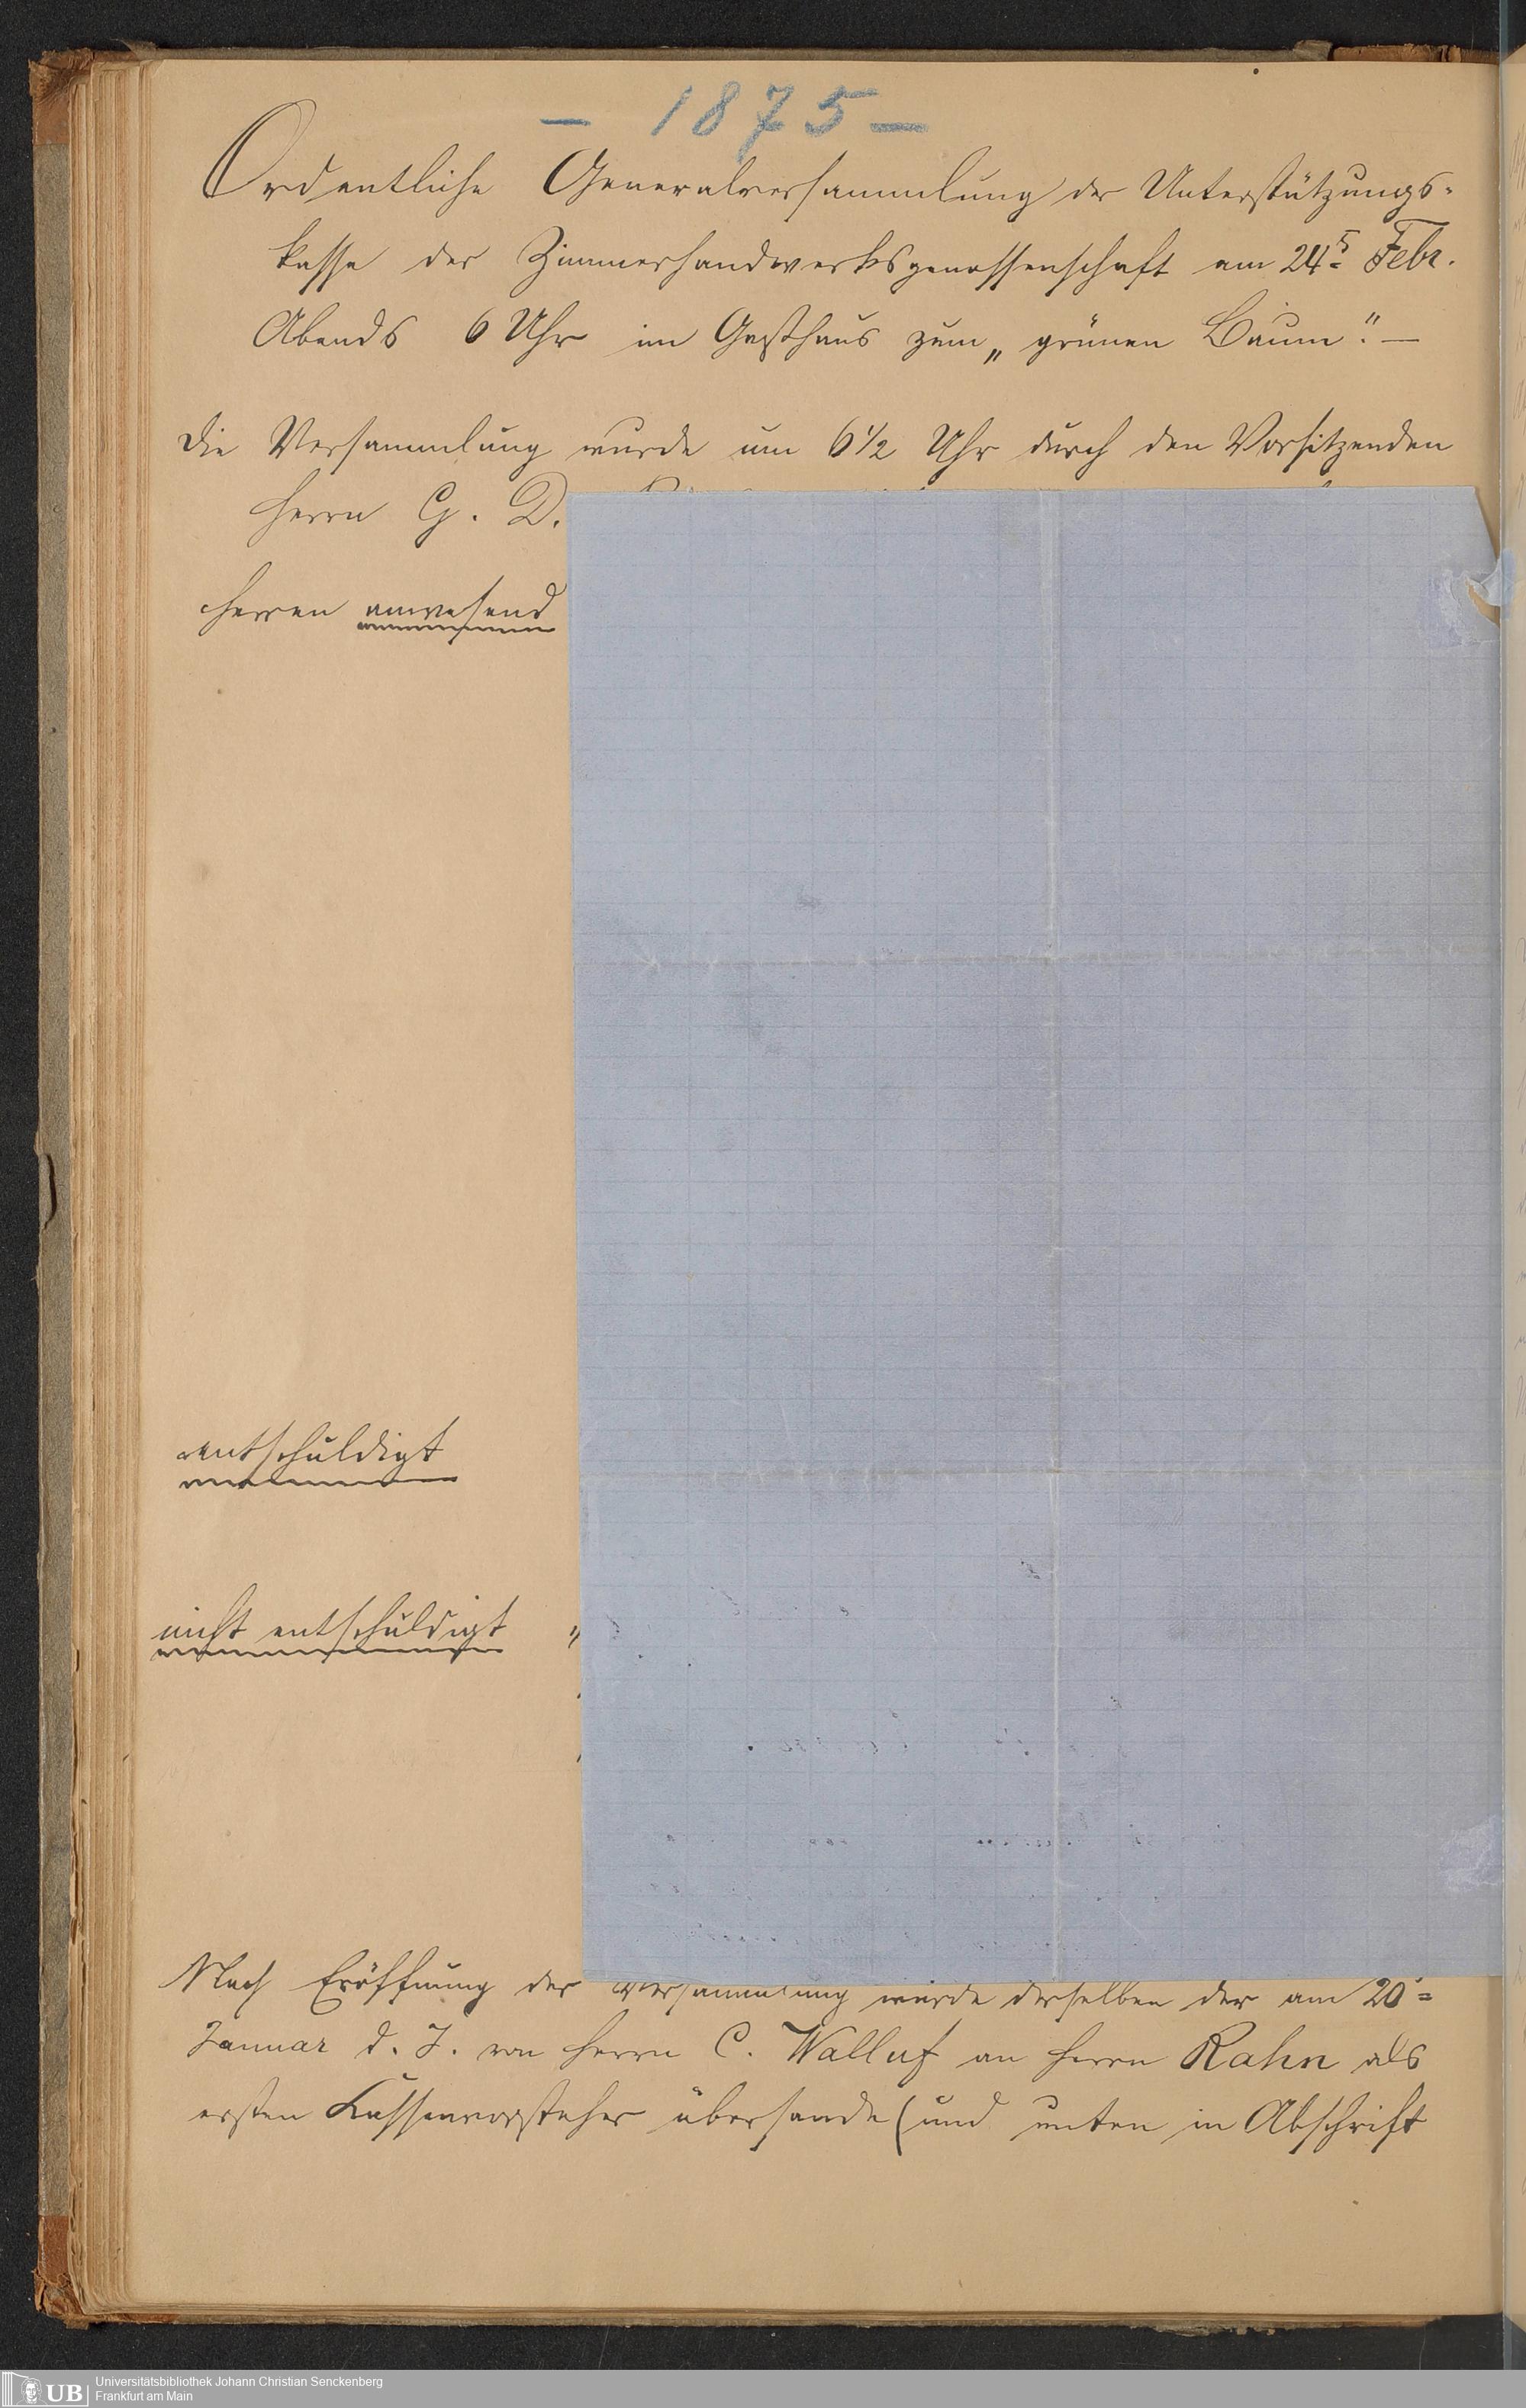 - 1875 -
Ordentliche Generalversammlung der Unterstützungs-
kasse der Zimmerhandwerksgenossenschaft am 24t Febr.
Abends 6 Uhr im Gasthaus zum „grünen Baum". —
Die Versammlung wurde um 6 1/2 Uhr durch den Vorsitzenden
Herrn G. D.
Herren anwesend
entschuldigt
nicht entschuldigt "
Nach Eröffnung der Versammlung wurde derselben der am 20t
Januar d. J. von Herrn C. Walluf an Herrn Rahn als
ersten Kassenvorsteher übersande (und unten in Abschrift
UB
Universitätsbibliothek Johann Christian Senckenberg
Frankfurt am Main